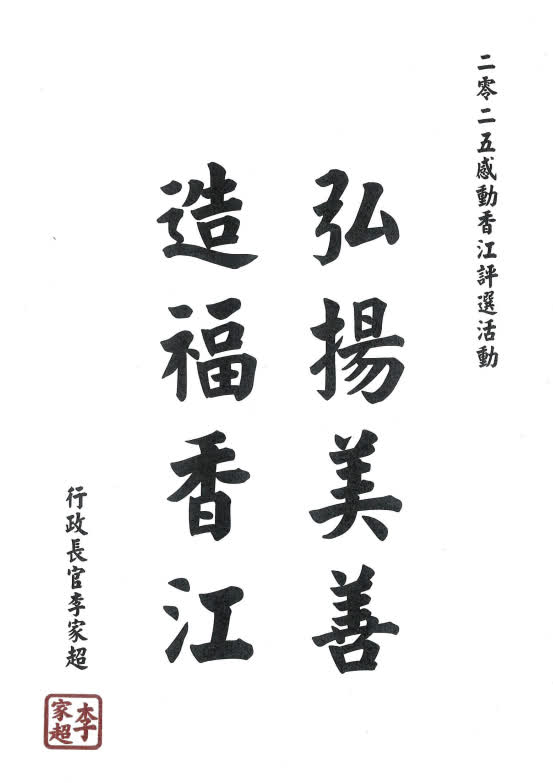 二零二五感動香江評選活動
弘揚美善
造福香江
行政長官李家超
李家超